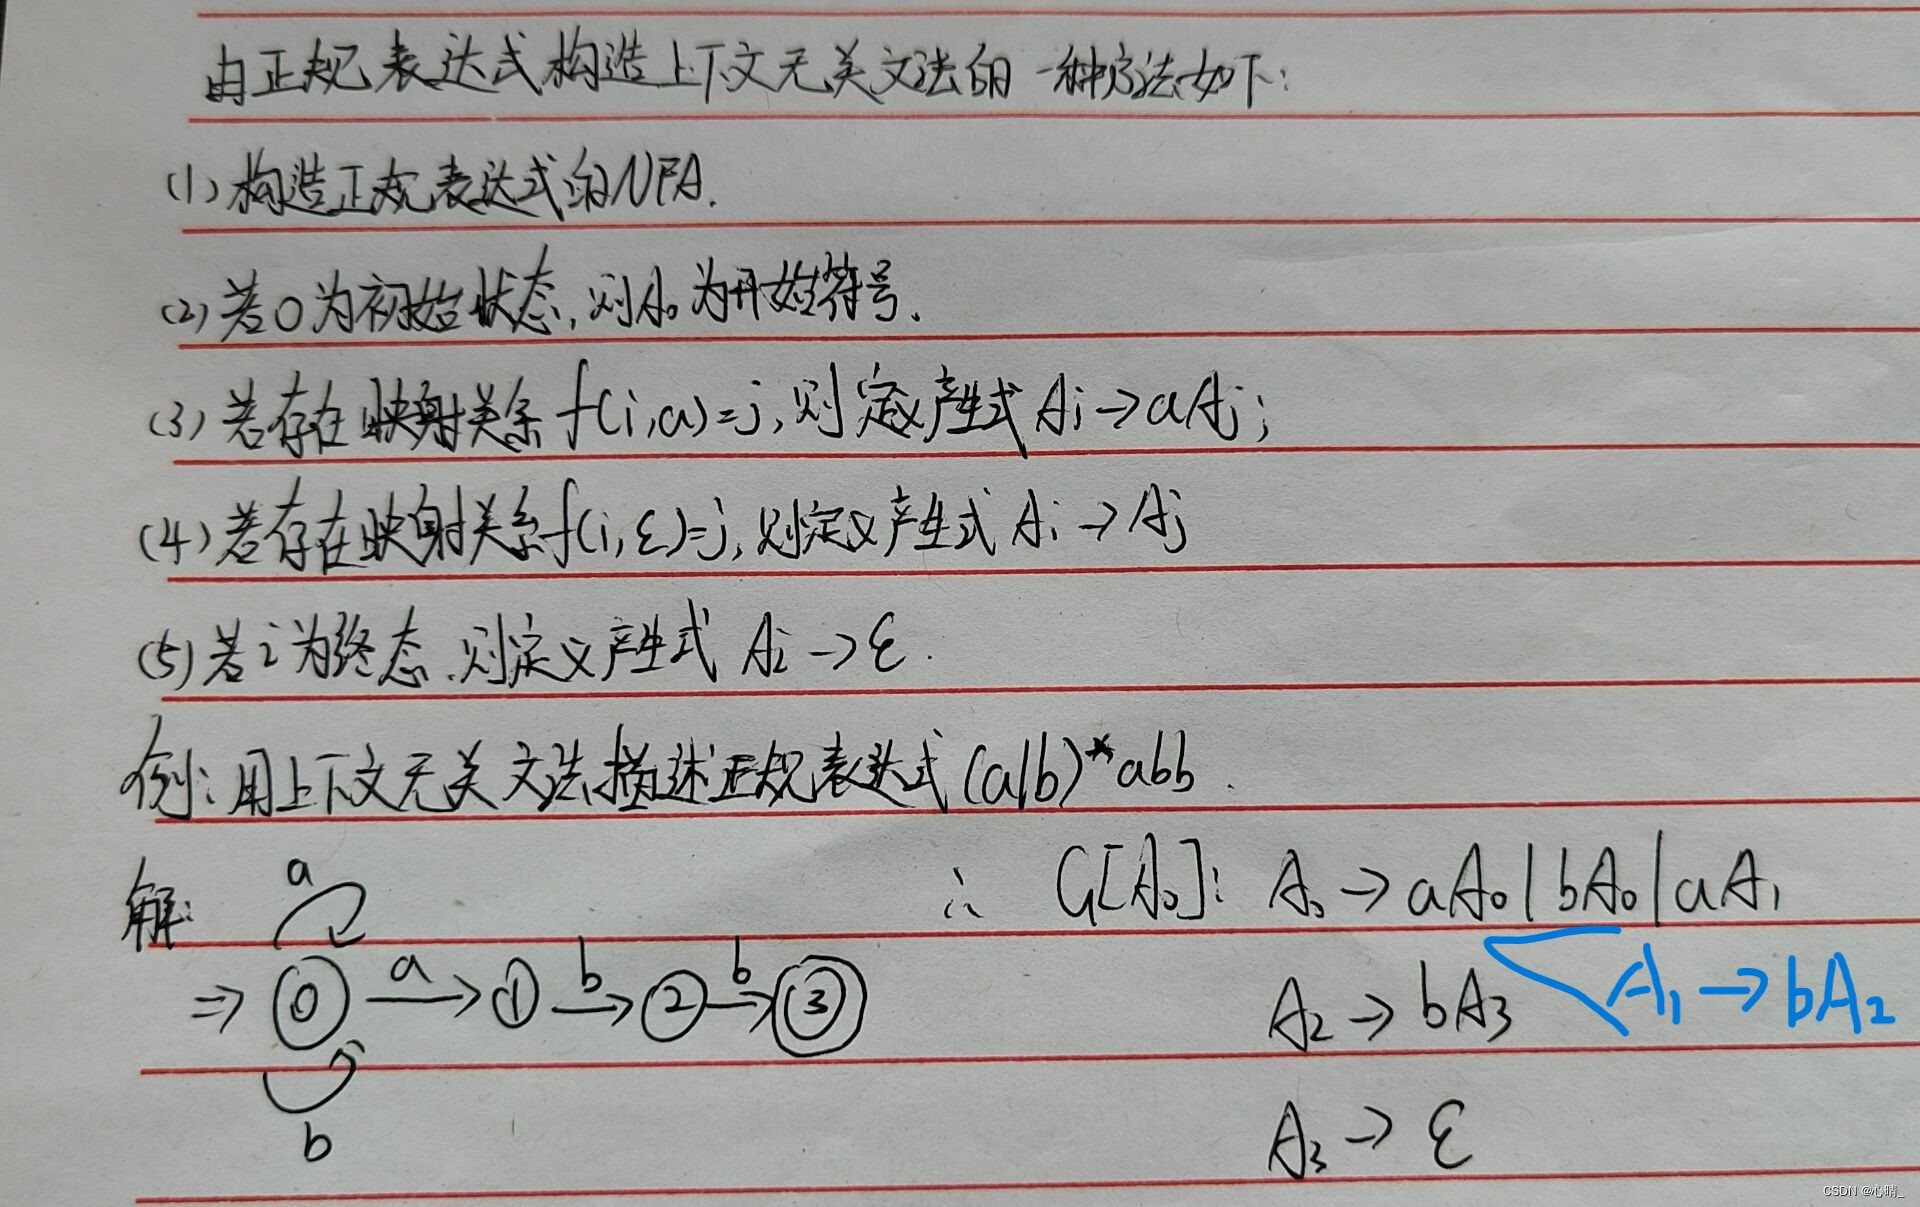 由正规表达式构造上下文无关文法的一种方法如下:
(1) 构造正规表达式的NFA.
(2) 若0为初始状态, 则A₀为开始符号.
(3) 若存在映射关系 f(i,a)=j, 则定义产生式 Ai→aAj;
(4) 若存在映射关系 f(i,ε)=j, 则定义产生式 Ai→Aj
(5) 若i为终态, 则定义产生式 Ai→ε.
例: 用上下文无关文法描述正规表达式(a|b)*abb.
解:
a
⇒ 0 a → 1 b → 2 b → 3
b
∴ G[A₀]: A₀→aA₀|bA₀|aA₁
A₁→bA₂
A₂→bA₃
A₃→ε
CSDN @心晴_